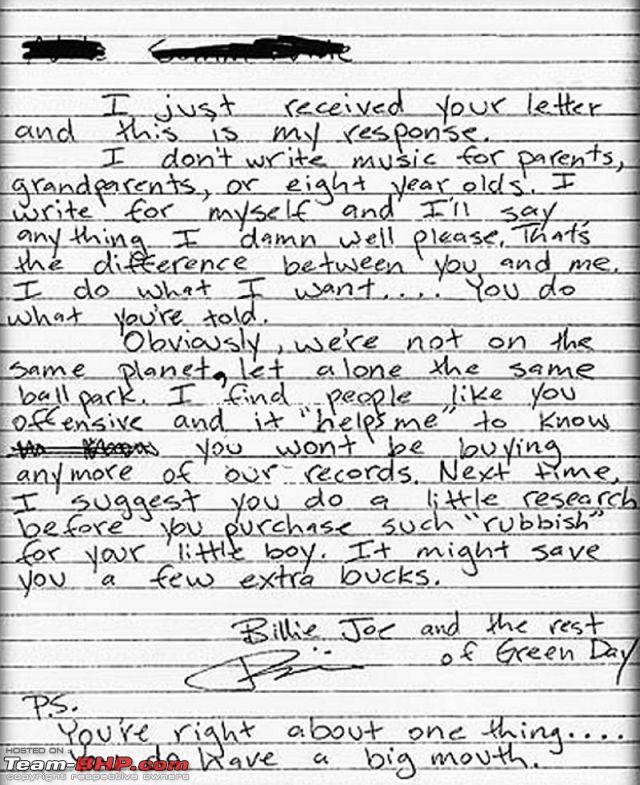 I just received your letter
and this is my response.
I don't write music for parents,
grandparents, or eight year olds. I
write for myself and I'll say
anything I damn well please. That's
the difference between you and me.
I do what I want.... You do
what you're told.
Obviously, we're not on the
same planet, let alone the same
ball park. I find people like you
offensive and it "helps me" to know
you wont be buying
anymore of our records. Next time,
I suggest you do a little research
before you purchase such "rubbish"
for your little boy. It might save
you a few extra bucks.
Billie Joe and the rest
of Green Day
P.S.
You're right about one thing....
You do have a big mouth.
HOSTED ON
Team-BHP.com
copyright respective owners